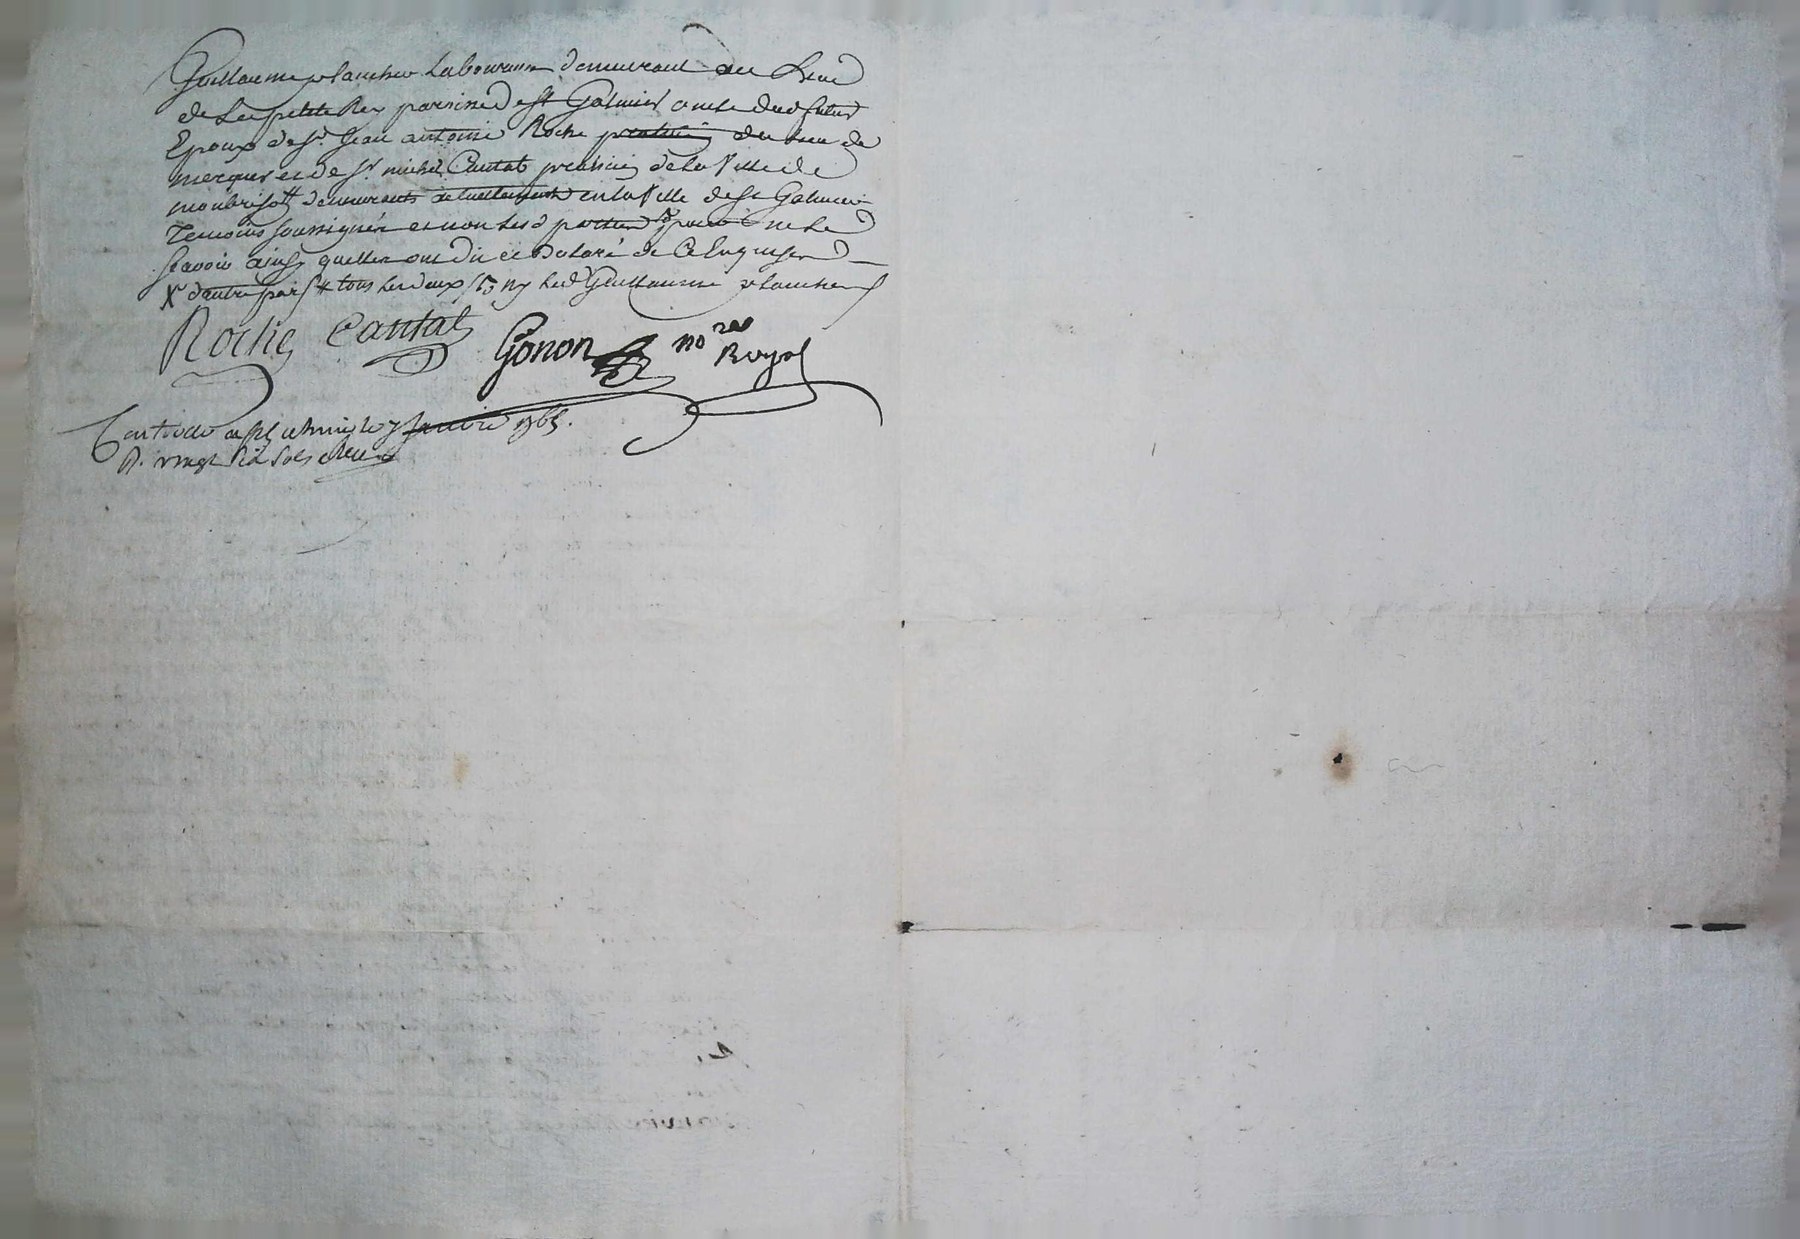 Guillaume plancher Laboureur demeurant au Lieu
de La petite Rey parroisse de st Galmier oncle dud futur
Epoux de sr Jean antoine Roche praticien du lieu de
et de sr michel Cautat praticien de La Ville de
montbrison demeurants actuellement en la Ville de st Galmier
Temoins soussignés et non Lesd parties ne Le
scavoir ainsy quelles ont dit et Declaré de Ce Enquises
X d'autre part tous Les deux ny Led Guillaume plancher
Roche Cautat Gonon nore Royal
Controllé a st le 7 Janvier 1765.
R. vingt six sols